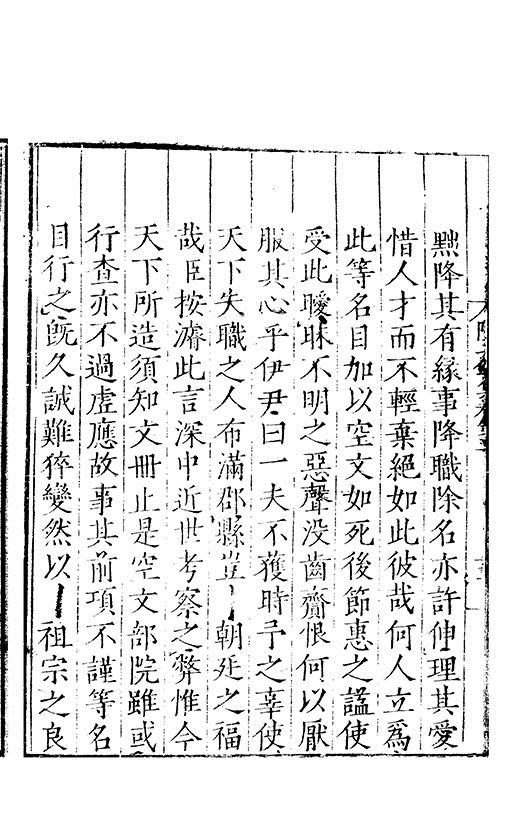 黜降其有緣事降職除名亦許伸理其愛
惜人才而不輕棄絕如此彼哉何人立爲
此等名目加以空文如死後節惠之諡使
受此曖昧不明之惡聲没齒齎恨何以厭
服其心乎伊尹曰一夫不獲時予之辜使
天下失職之人布滿郡縣豈朝廷之福
哉臣按濬此言深中近世考察之弊惟今
天下所造須知文冊止是空文部院雖或
行查亦不過虛應故事其前項不謹等名
目行之旣久誠難猝變然以祖宗之良